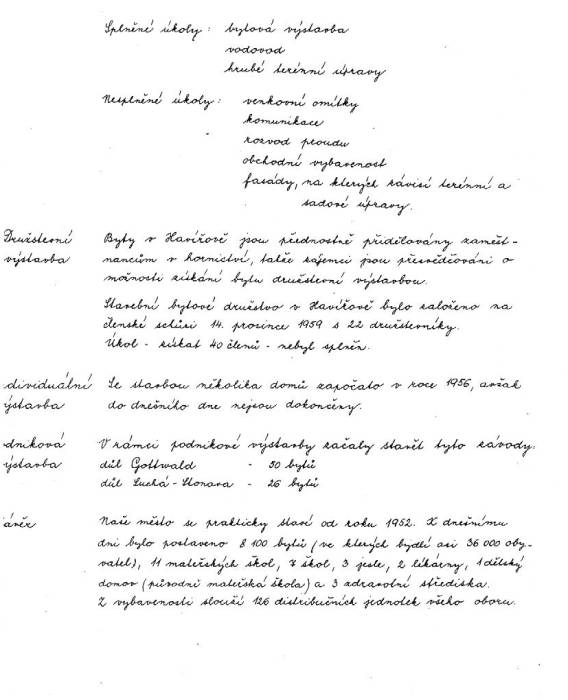 Splněné úkoly: bytová výstavba
vodovod
hrubé terénní úpravy
Nesplněné úkoly: venkovní omítky
komunikace
rozvod proudu
obchodní vybavenost
fasády, na kterých závisí terénní a
sadové úpravy.
Družstevní výstavba
Byty v Havířově jsou přednostně přidělovány zaměst-
nancům v hornictví, takže zájemci jsou přesvědčováni o
možnosti získání bytu družstevní výstavbou.
Stavební bytové družstvo v Havířově bylo založeno na
členské schůzi 14. prosince 1959 s 22 družstevníky.
Úkol - získat 40 členů - nebyl splněn.
dividuální ýstavba
Se stavbou několika domů započato v roce 1956, avšak
do dnešního dne nejsou dokončeny.
dniková ýstavba
V rámci podnikové výstavby začaly stavět tyto závody:
důl Gottwald - 50 bytů
důl Suchá-Stonava - 26 bytů
ávěr
Naše město se prakticky staví od roku 1952. K dnešnímu
dni bylo postaveno 8 100 bytů (ve kterých bydlí asi 36 000 oby-
vatel), 11 mateřských škol, 7 škol, 3 jesle, 2 lékárny, 1 dětský
domov (původně mateřská škola) a 3 zdravotní střediska.
Z vybavenosti slouží 126 distribučních jednotek všeho oboru.